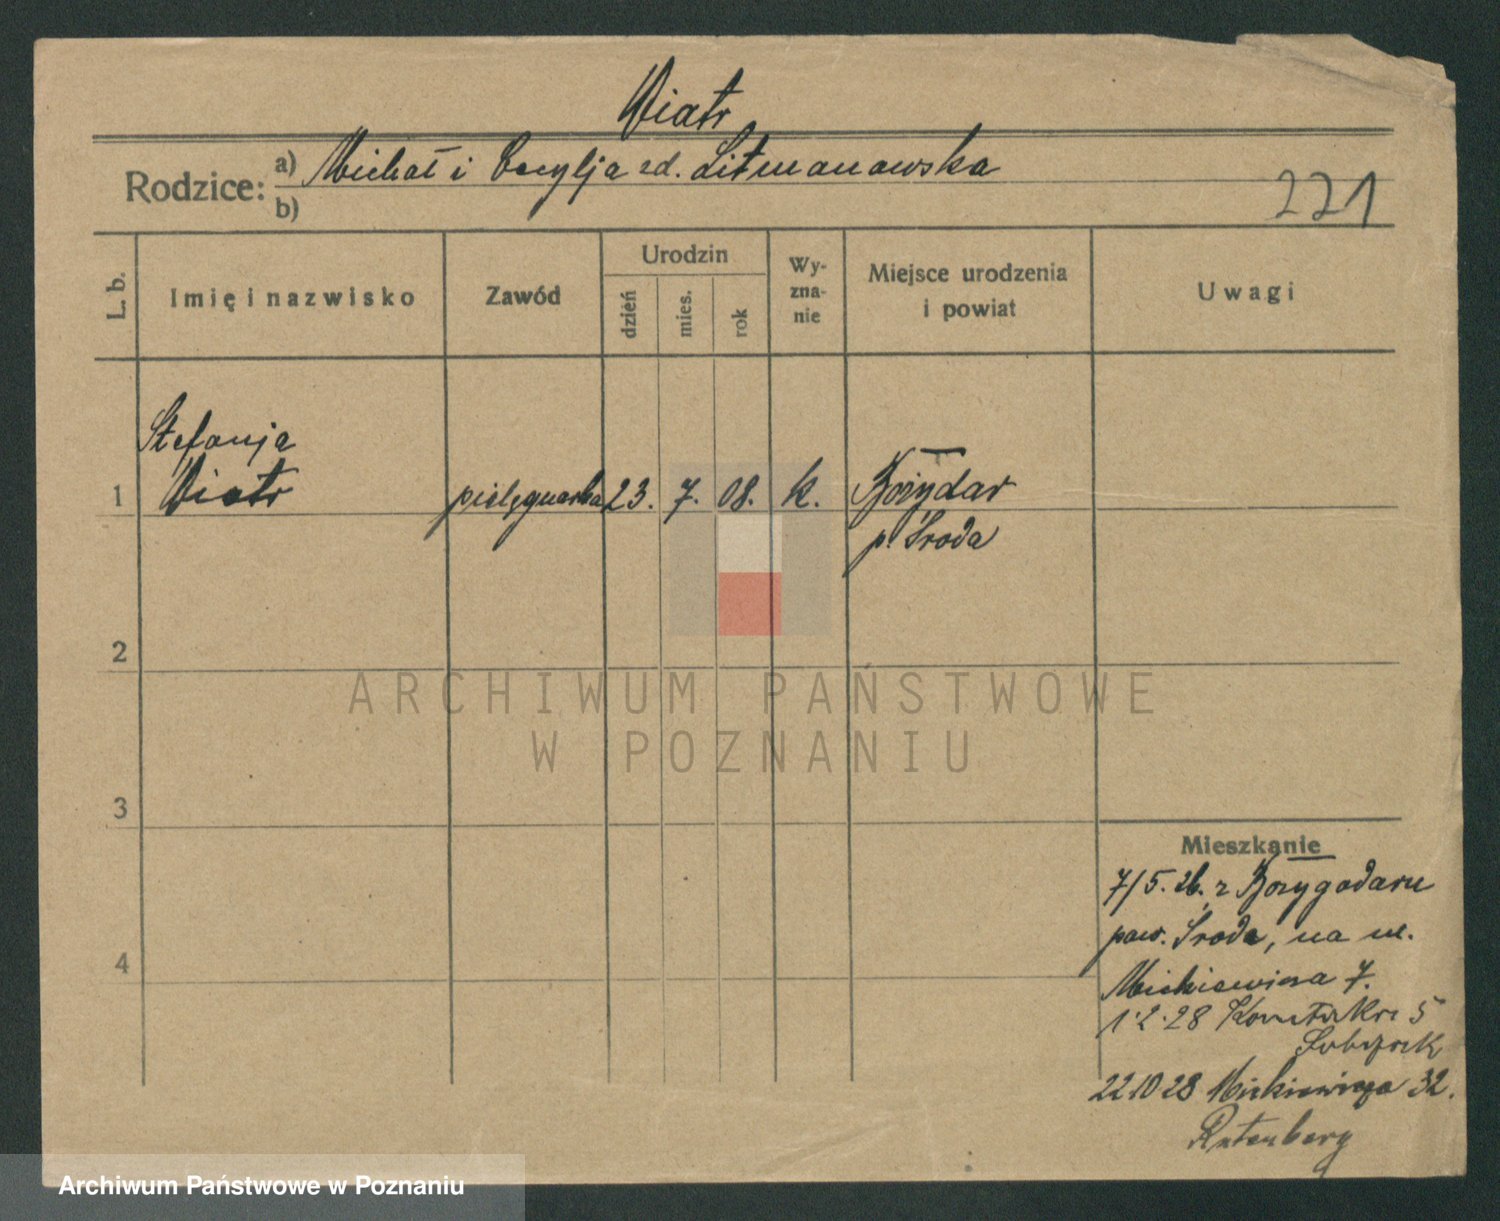 Wiatr
Rodzice: a) Michał i Cecylja zd. Litmanowska
b)
221
L. b.
Imię i nazwisko
Zawód
Urodzin
dzień
mies.
rok
Wy-
zna-
nie
Miejsce urodzenia
i powiat
Uwagi
Stefanja
1 Wiatr pielęgniarka 23. 7. 08. k. Bożydar
p. Środa
2
3
4
Mieszkanie
7/5. 26. z
pow. Środa, na ul.
Mickiewicza 7.
1.2.28 5
22.10.28 Mickiewicza 32.
Rutenberg
ARCHIWUM PAŃSTWOWE
W POZNANIU
Archiwum Państwowe w Poznaniu